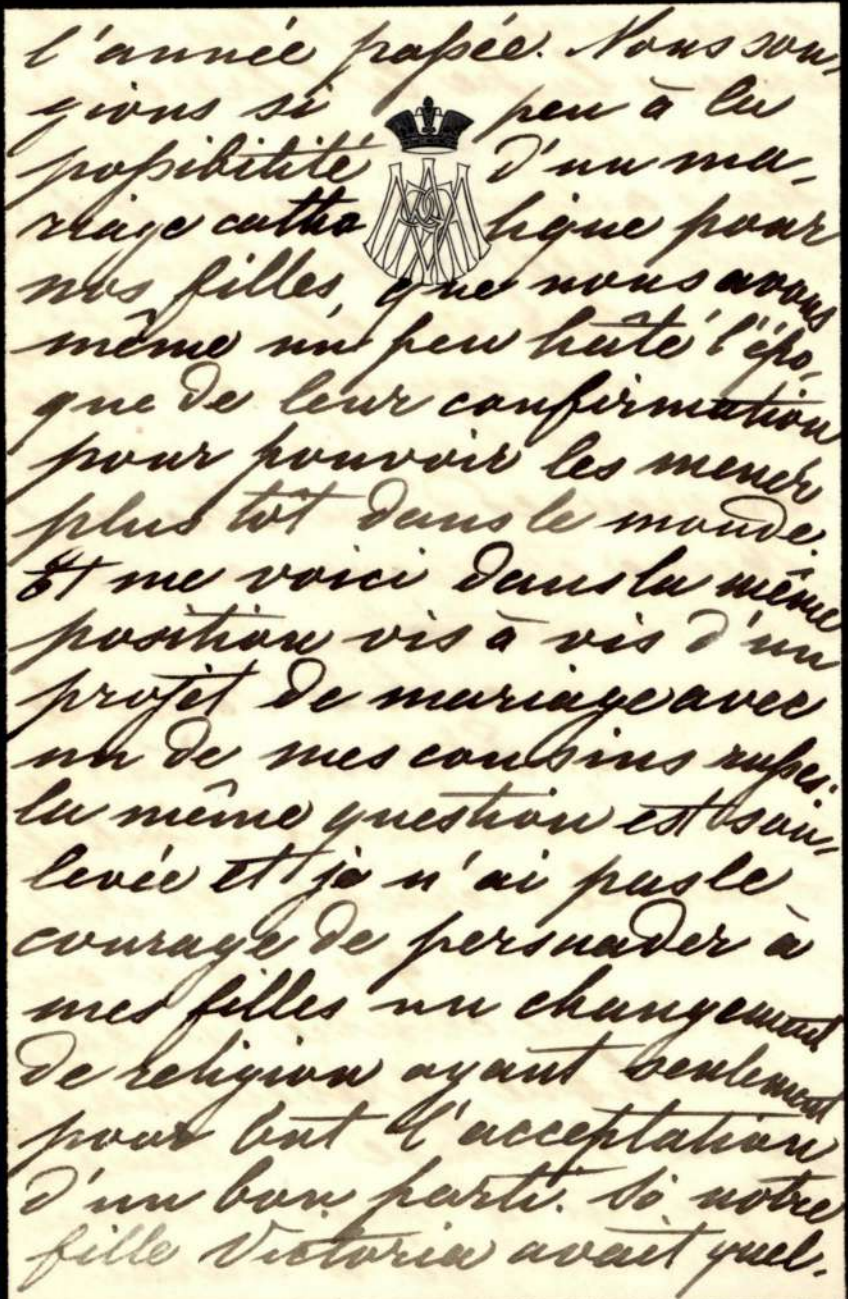 l'année passée. Nous son-
gions si peu à la
possibilité d'un ma-
riage catholique pour
nos filles, que nous avons
même un peu hâté l'épo-
que de leur confirmation
pour pouvoir les mener
plus tôt dans le monde.
Et me voici dans la même
position vis à vis d'un
projet de mariage avec
un de mes cousins russes:
la même question est sou-
levée et je n'ai pas le
courage de persuader à
mes filles un changement
de religion ayant seulement
pour but l'acceptation
d'un bon parti. Si notre
fille Victoria avait quel-